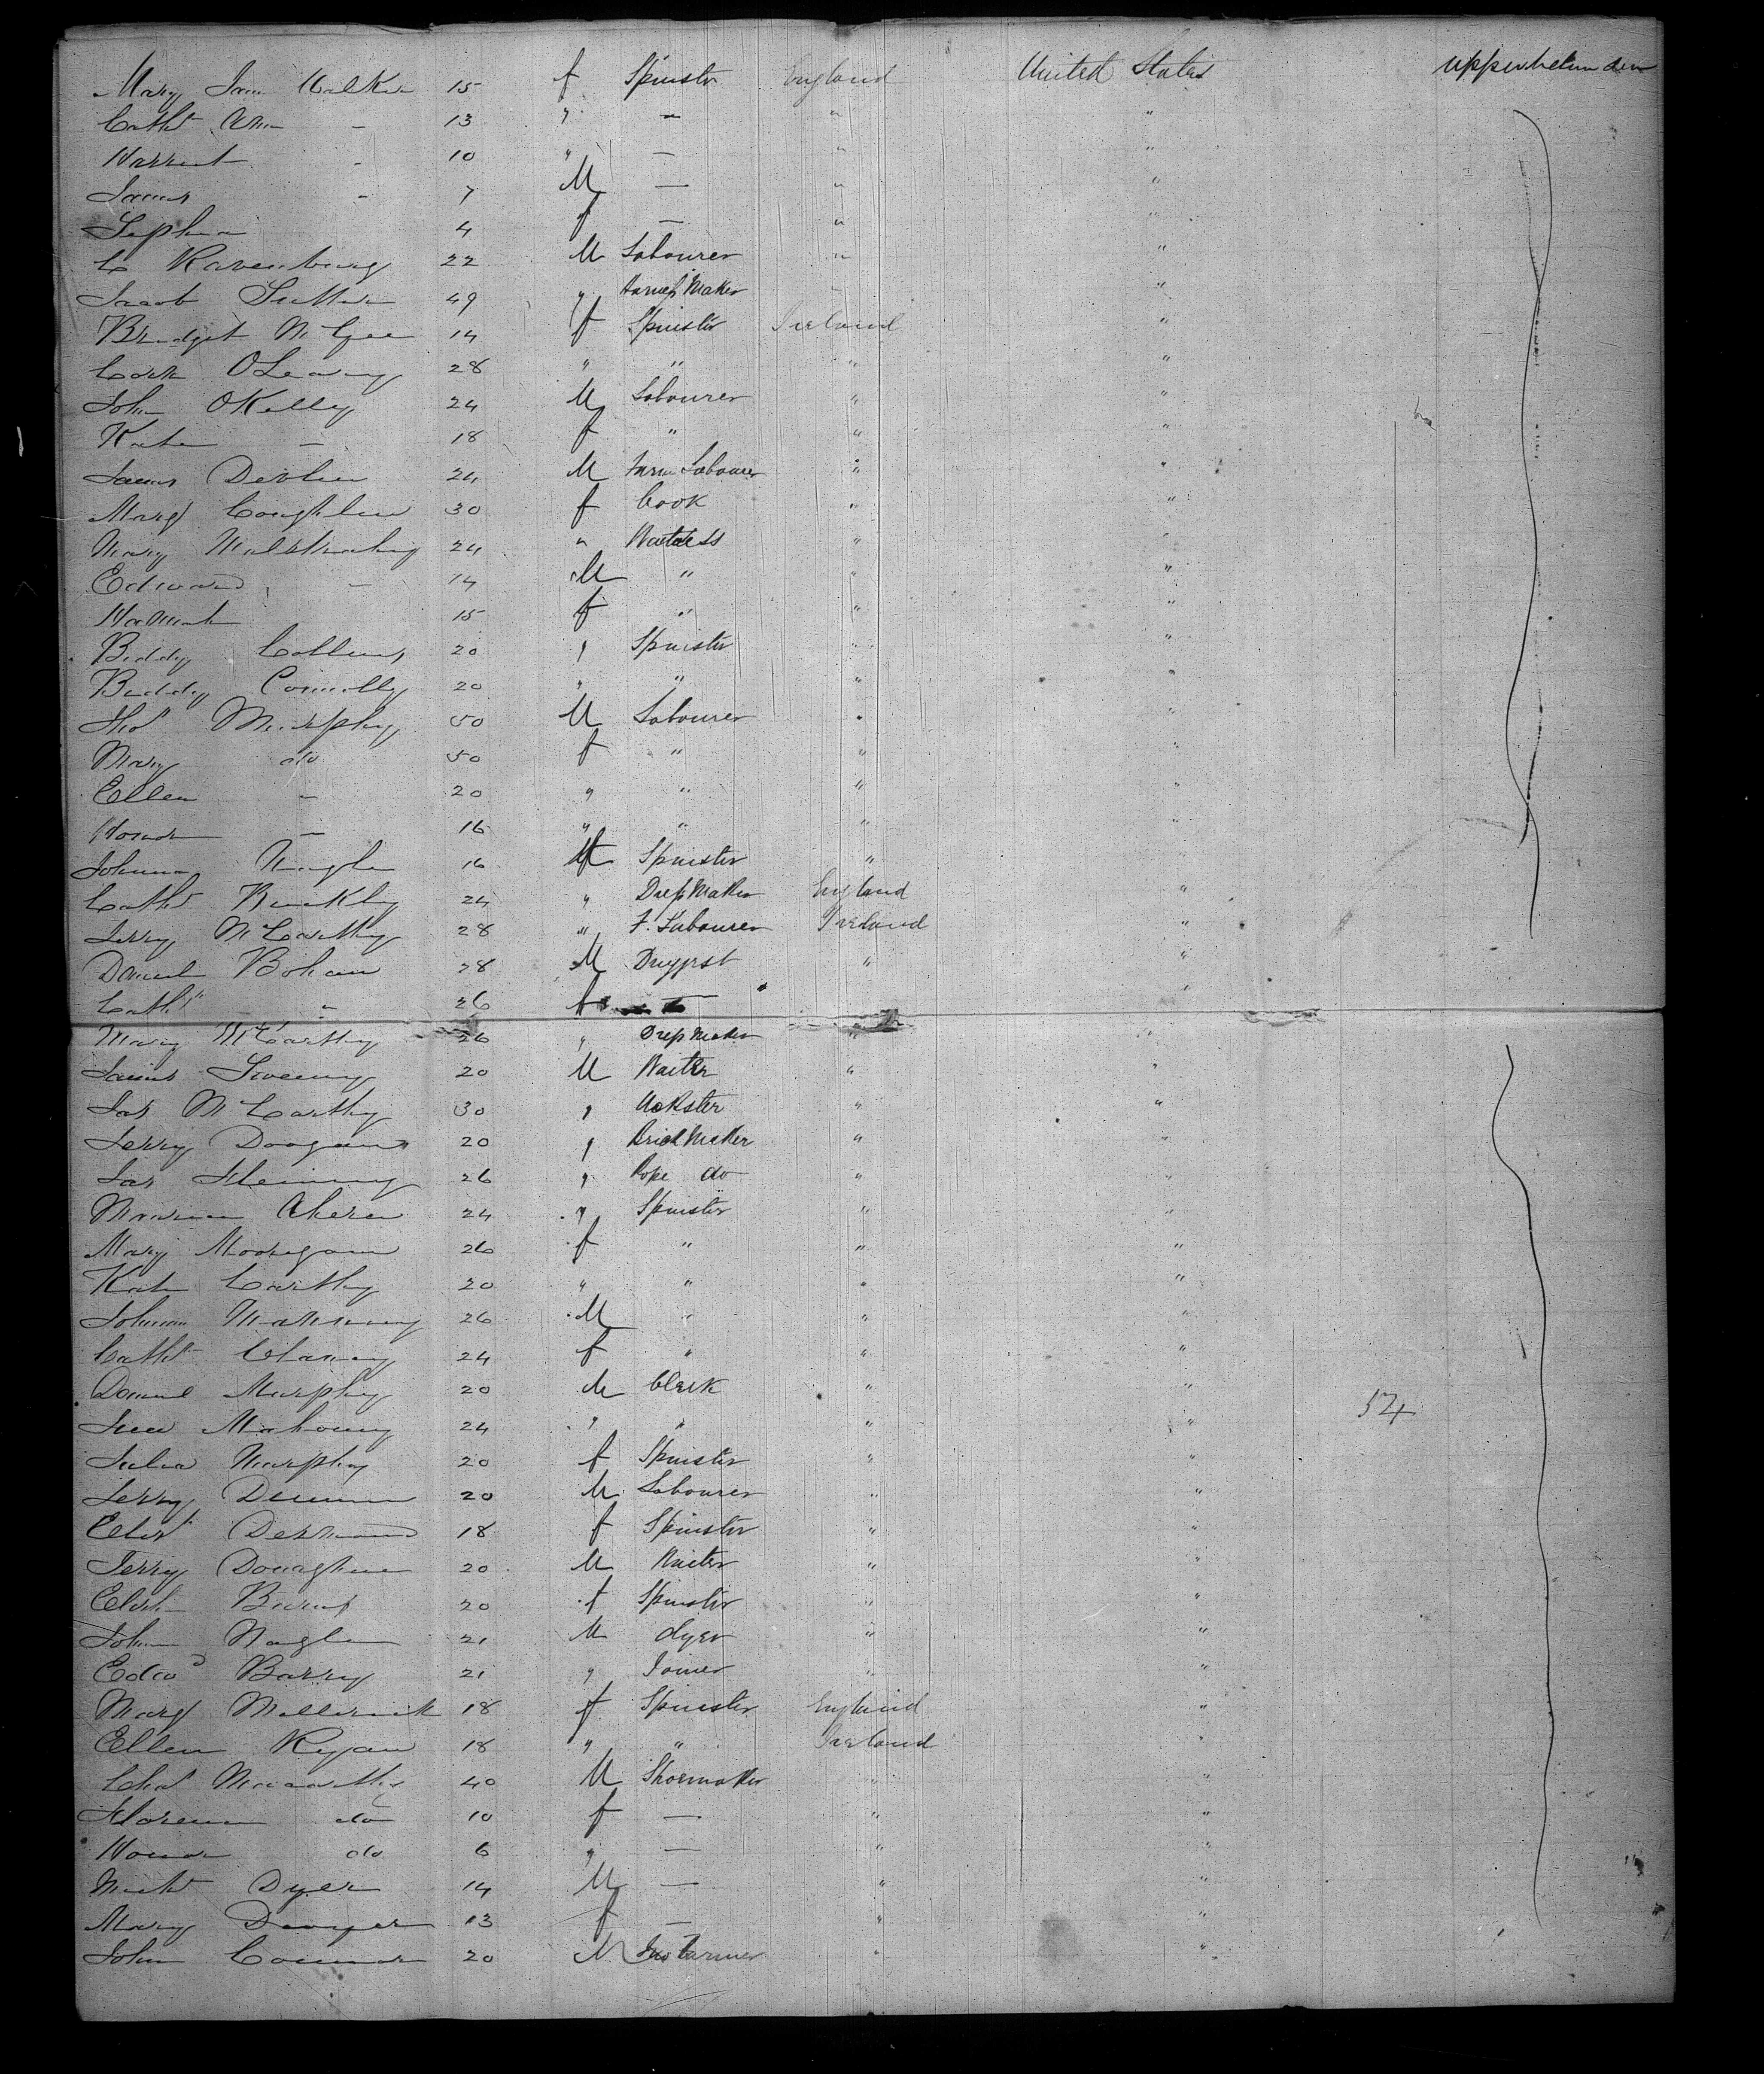 Mary Jane Walker 15 f Spinster England United States upper between decks
Cathe Ann - 13 " — " "
Harriet - 10 " — " "
James - 7 M — " "
4 f — "
C Ravenburg 22 M Labourer " "
Jacob 49 " Harness Maker "
Bridget McGee 14 f Spinster Ireland "
Cath OLeary 28 " " " "
John OKelly 24 M Labourer " "
Kate — 18 f " " "
James Devlin 24 M Farm Labourer " "
Marg Coughlin 30 f Cook " "
Mary 24 " Waitress " "
Edward — 14 M " " "
Hannah 15 f " " "
Biddy Collins 20 " Spinster " "
Biddy Connolly 20 " " " "
Tho Murphy 50 M Labourer " "
Mary do 50 f " " "
Ellen - 20 " " " "
Honor — 16 " " " "
Johanna Nagle 16 f Spinster "
Cathe Buckley 24 " Dress Maker England "
Jerry McCarthy 28 " F. Labourer Ireland "
Daniel Bohan 28 M Druggist " "
Cathe " 26 f — "
Mary McCarthy 26 " Dress Maker " "
James Sweeny 20 M Waiter " "
Jas McCarthy 30 " Hokster " "
Jerry Doogan 20 " Brick Maker " "
Jas Fleming 26 " Rope do " "
Ahern 24 " Spinster " "
Mary 26 f " " "
Kate Carthy 20 " " " "
Johanna Mahoney 26 M " " "
Cathe Clancy 24 f " " "
Daniel Murphy 20 M Clerk " "
Mahoney 24 " " " " 54
Julia Murphy 20 f Spinster " "
Jerry 20 M Labourer " "
Desmond 18 f Spinster " "
Jerry Donaghue 20 M Waiter " "
20 f Spinster " "
John Nagle 21 M dyer " "
Edwd Barry 21 " Joiner " "
Marg 18 f Spinster England "
Ellen Ryan 18 " " Ireland "
40 M Shoemaker " "
Florence do 10 f — " "
Honor do 6 " — " "
Michl Dyer 14 M — " "
Mary Dwyer 13 f — " "
John Connor 20 M Farmer " "